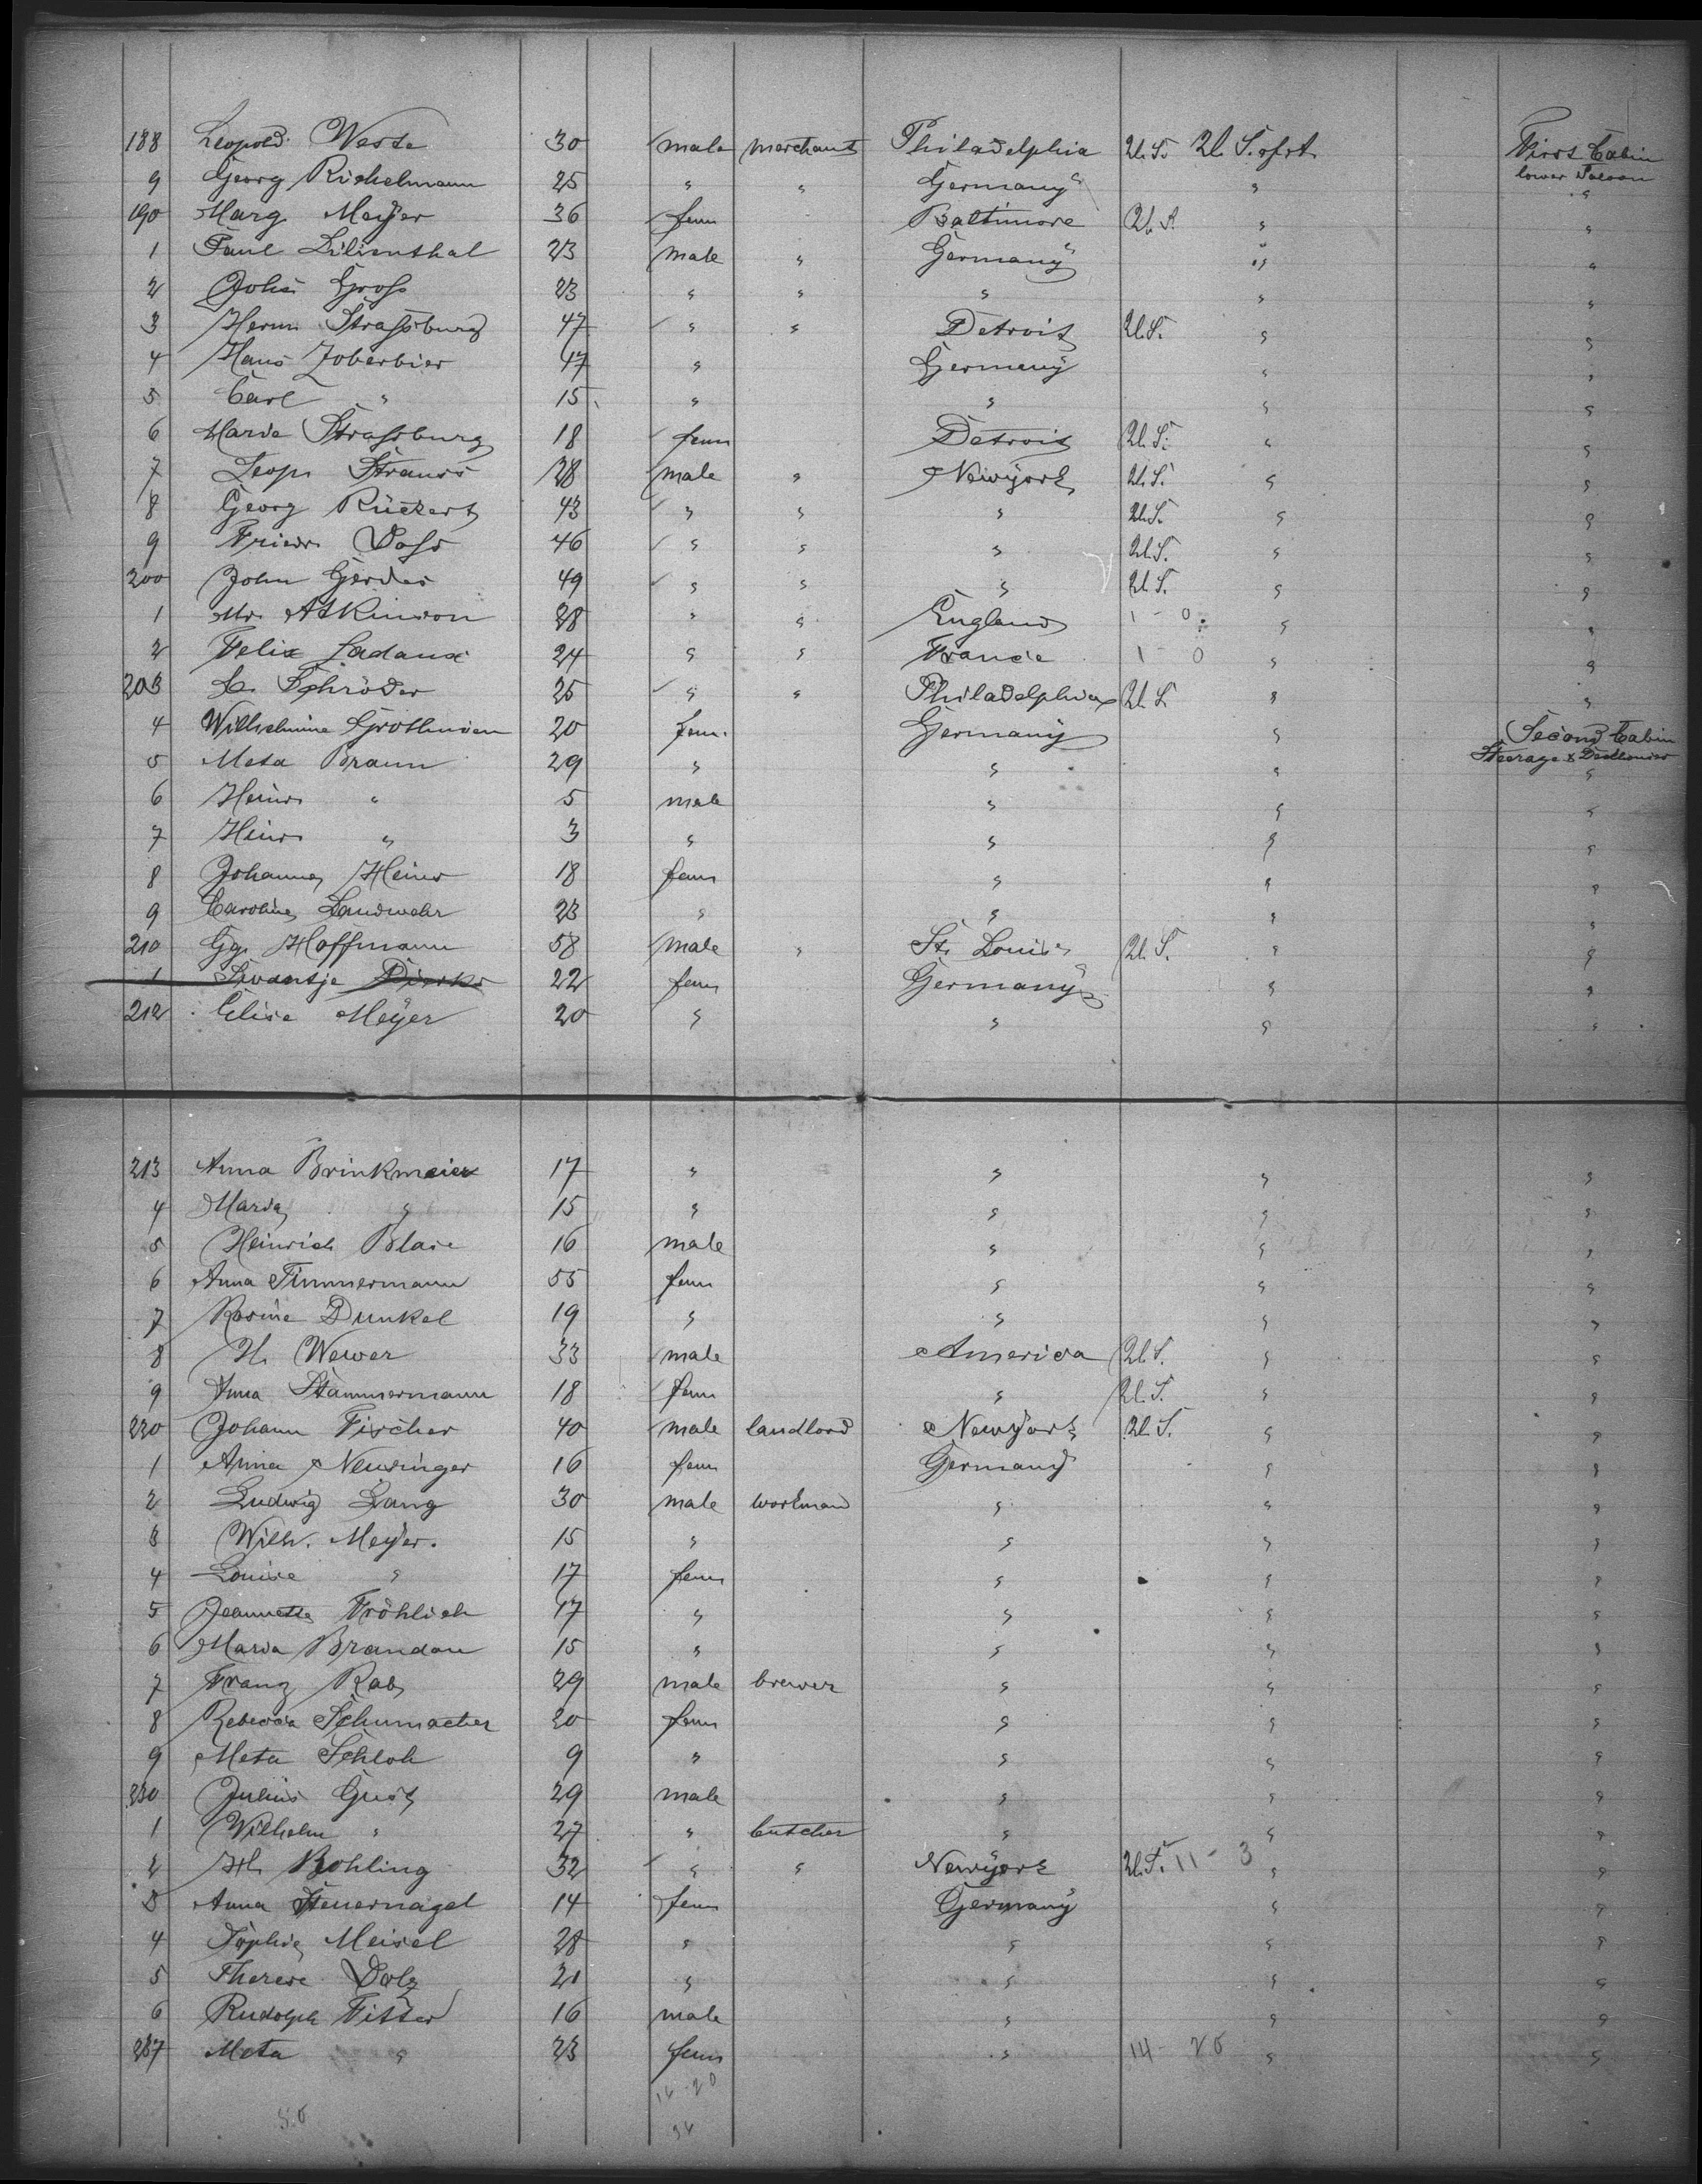 188 Leopold Weste 30 male merchant Philadelphia U.S. U.S. of A. First Cabin
lower Saloon
9 Georg Richelmann 25 " " Germany " "
190 Marg. Meyer 36 fem Baltimore U.S. " "
1 Paul Lilienthal 23 male " Germany " "
2 Johs Groß 23 " " " " "
3 Herm. Straßburg 47 " " Detroit U.S. " "
4 Hans Zoberbier 17 " Germany " "
5 Carl " 15 " " " "
6 Maria Straßburg 18 fem Detroit U.S. " "
7 Leop. Strauss 38 male " Newyork U.S. " "
8 Georg Rückert 43 " " " U.S. " "
9 Friedr. Doß 46 " " " U.S. " "
200 John Gerdes 49 " " " U.S. " "
1 Mr. Atkinson 28 " " England 1 - 0 " "
2 Felix Ladaux 24 " " France 1 - 0 " "
203 C. Schröder 25 " " Philadelphia U.S. " "
4 Wilhelmine 20 fem. Germany " Second Cabin
Steerage &
5 Meta Braun 29 " " " "
6 Heinr. " 5 male " " "
7 Heinr. " 3 " " " "
8 Johanna Heins 18 fem " " "
9 Caroline Landwehr 23 " " " "
210 Gg. Hoffmann 58 male " St. Louis U.S. " "
1 Swantje Dirks 22 fem Germany " "
212 Elise Meÿer 20 " " " "
213 Anna Brinkmeier 17 " " " "
4 Maria " 15 " " " "
5 Heinrich Blase 16 male " " "
6 Anna Timmermann 55 fem " " "
7 Rosine Dunkel 19 " " " "
8 H. Wewer 33 male America U.S. " "
9 Anna Stammermann 18 fem " U.S. " "
220 Johann Fischer 40 male landlord Newyork U.S. " "
1 Anna Neuringer 16 fem Germany " "
2 Ludwig Lang 30 male workman " " "
3 Wilh. Meyer. 15 " " " "
4 Louise " 17 fem " " "
5 Jeannette Fröhlich 17 " " " "
6 Maria Brandau 15 " " " "
7 Franz Rab 29 male brewer " " "
8 Rebecca Schumacher 20 fem " " "
9 Meta Schloh 9 " " " "
230 Julius Gust 29 male " " "
1 Wilhelm " 27 " butcher " " "
2 H. Bohling 32 " " Newyork U.S. 11 - 3 " "
3 Anna Steuernagel 14 fem Germany " "
4 Sophie Meisel 28 " " " "
5 Therese Dolz 21 " " " "
6 Rudolph Fitter 16 male " " "
237 Meta " 23 fem " 14 - 20 " "